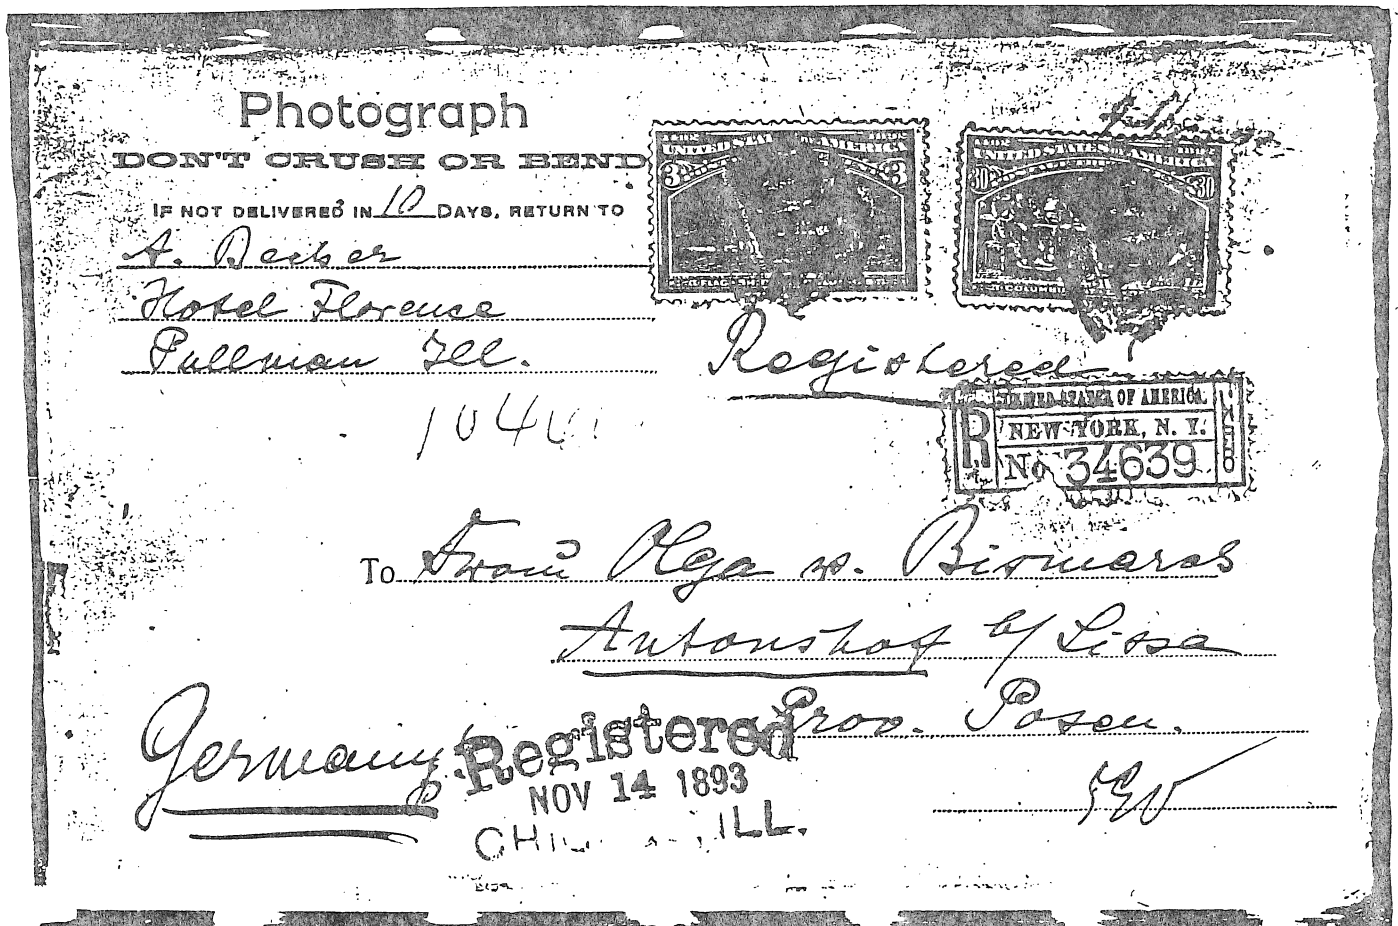 Photograph
DON'T CRUSH OR BEND
IF NOT DELIVERED IN 10 DAYS, RETURN TO
A. Becker
Hotel Florence
Pullman Ill.
UNITED STATES OF AMERICA
3 3
UNITED STATES OF AMERICA
30 30
Registered
UNITED STATES OF AMERICA.
R
NEW YORK, N. Y.
No 34639
To Frau Olga v. Bismarck
Antonshof b/ Lissa
Prov. Posen.
Germany
Registered
NOV 14 1893
ILL.